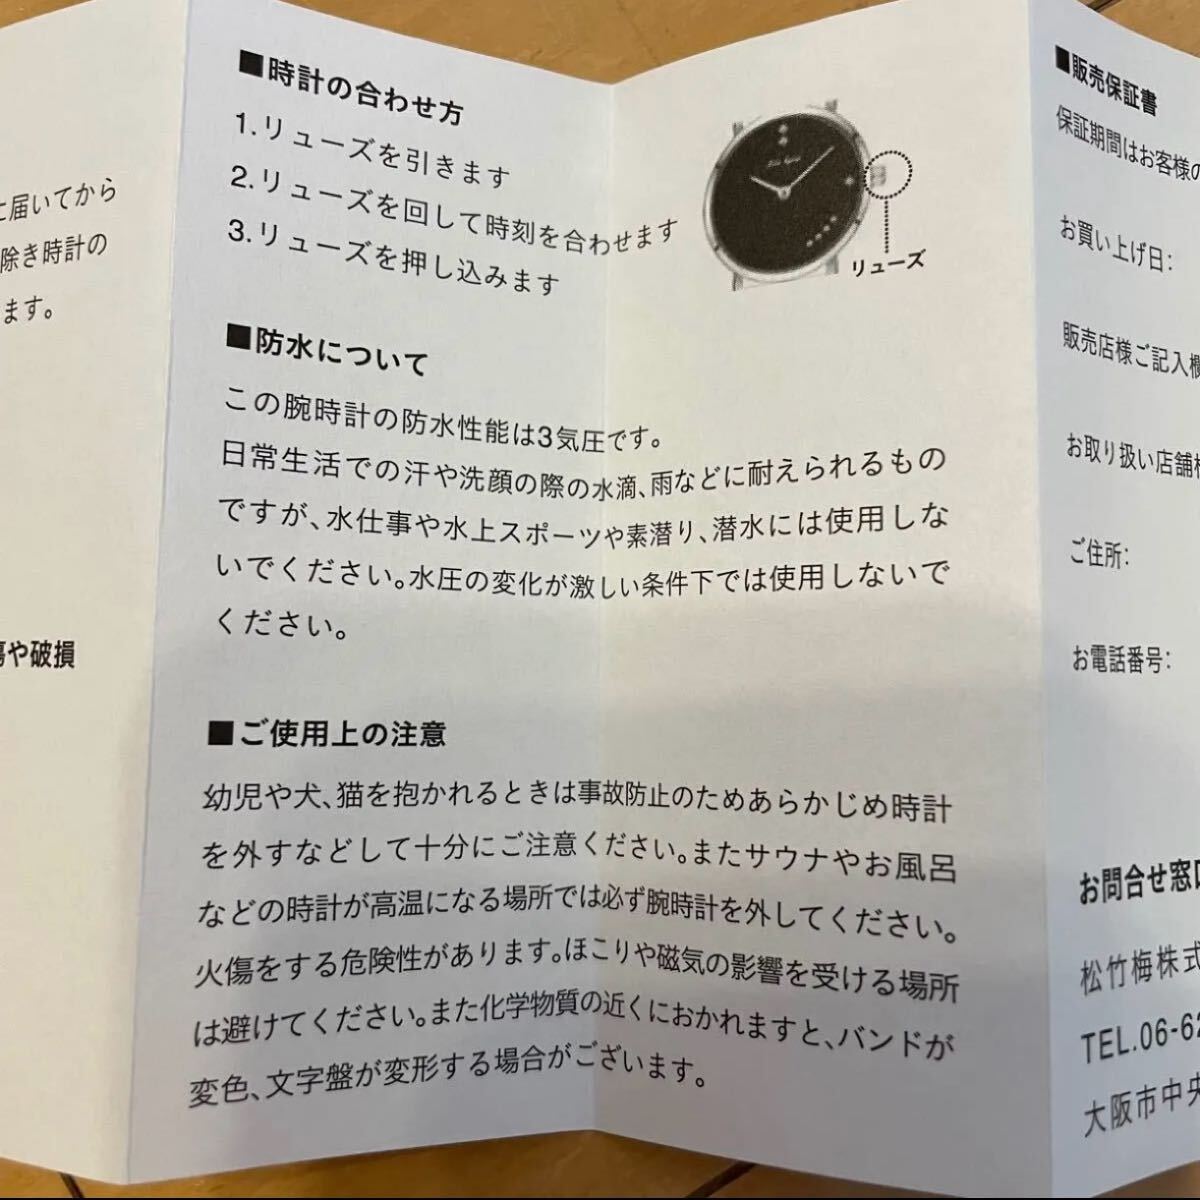 に届いてから
除き時計の
ます。
や破損
■時計の合わせ方
1.リューズを引きます
2.リューズを回して時刻を合わせます
3.リューズを押し込みます
リューズ
■防水について
この腕時計の防水性能は3気圧です。
日常生活での汗や洗顔の際の水滴、雨などに耐えられるもの
ですが、水仕事や水上スポーツや素潜り、潜水には使用しな
いでください。水圧の変化が激しい条件下では使用しないで
ください。
■ご使用上の注意
幼児や犬、猫を抱かれるときは事故防止のためあらかじめ時計
を外すなどして十分にご注意ください。またサウナやお風呂
などの時計が高温になる場所では必ず腕時計を外してください。
火傷をする危険性があります。ほこりや磁気の影響を受ける場所
は避けてください。また化学物質の近くにおかれますと、バンドが
変色、文字盤が変形する場合がございます。
■販売保証書
保証期間はお客様の
お買い上げ日:
販売店様ご記入欄
お取り扱い店舗
ご住所:
お電話番号:
お問合せ窓口
松竹梅株式
TEL.06-62
大阪市中央